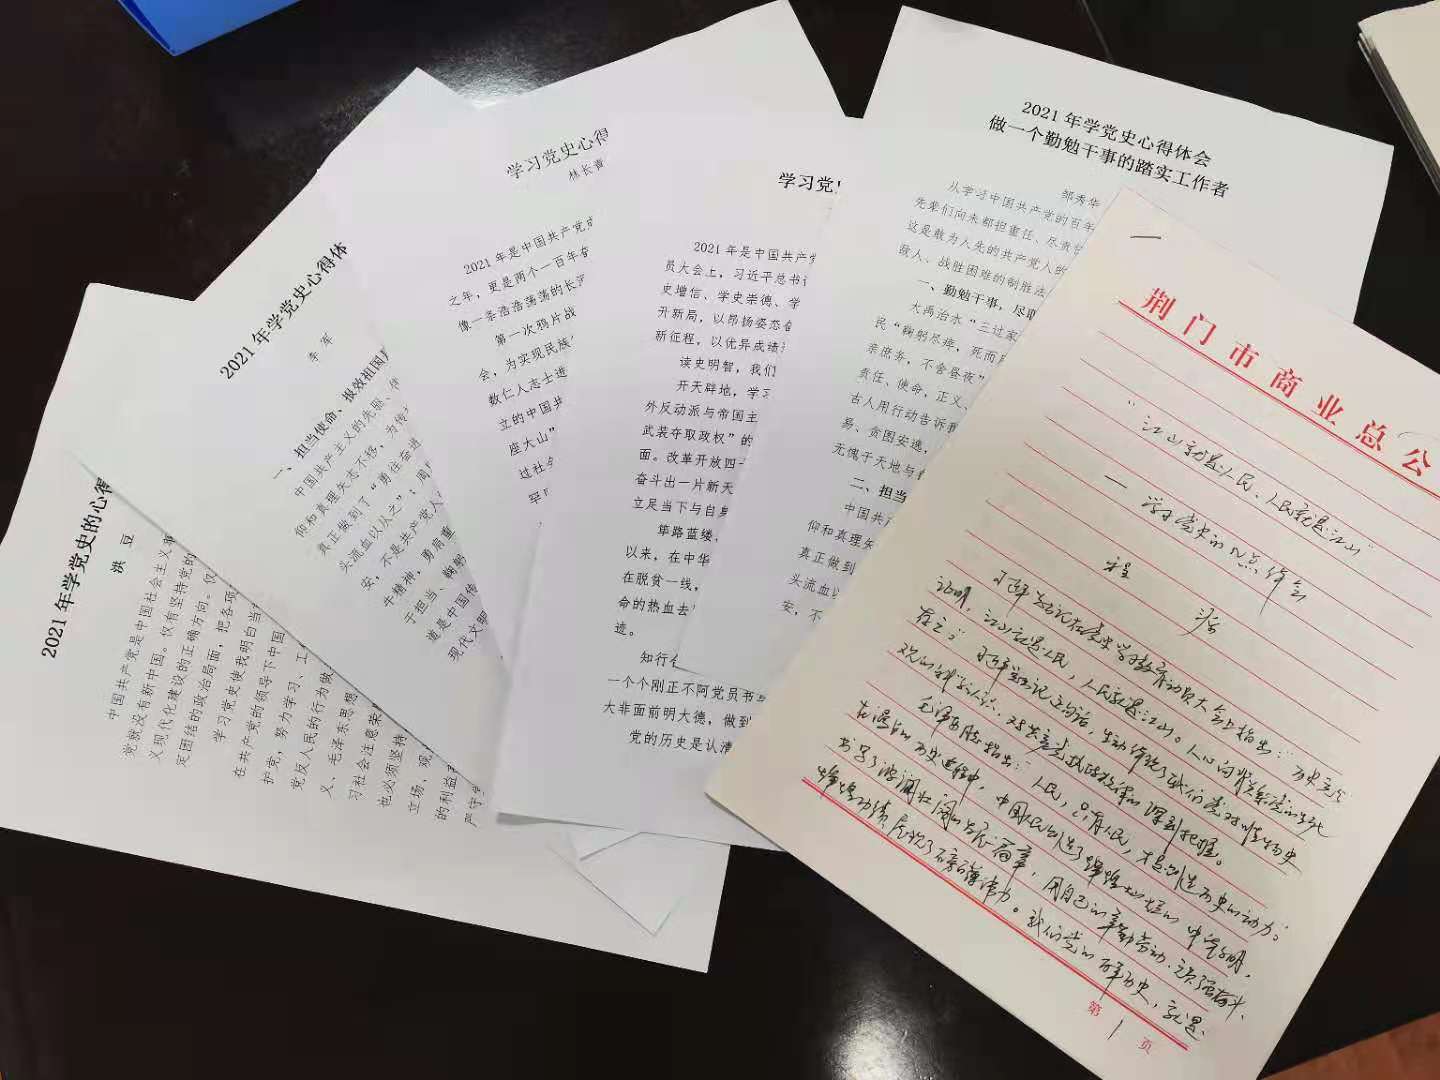 2021年学党史的心得
洪 豆
中国共产党是中国社会主义事
党就没有新中国。仅有坚持党的
义现代化建设的正确方向。仅
定团结的政治局面，把各项
学习党史使我明白当
在共产党的领导下中国
护党，努力学习、工
党反人民的行为做
义、毛泽东思想
习社会注意荣
也必须坚持
立场、观
的利益
严守
2021年学党史心得体
李 军
一、担当使命、报效祖国
中国共产主义的先驱、
仰和真理矢志不移，为传
真正做到了“勇往奋进
头流血以从之”；周
安，不是共产党人
牛精神，勇肩重
于担当、鞠躬
道是中国传
现代文明
学习党史心得
林长青
2021年是中国共产党成
之年，更是两个一百年奋
像一条浩浩荡荡的长河
第一次鸦片战
会，为实现民族
数仁人志士进
立的中国共
座大山”
过社会
学习党史
2021年是中国共产党
员大会上，习近平总书记
史增信、学史崇德、学
升新局，以昂扬姿态奋
新征程，以优异成绩
读史明智，我们
开天辟地，学习
外反动派与帝国主
武装夺取政权”的
面。改革开放四十
奋斗出一片新天
立足当下与自身
筚路蓝缕，
以来，在中华
在脱贫一线，
命的热血去
迹。
知行合
一个个刚正不阿党员书写
大非面前明大德，做到
党的历史是认清
2021年学党史心得体会
做一个勤勉干事的踏实工作者
邹秀华
从学习中国共产党的百年
先辈们向来都担重任、尽责
这是敢为人先的共产党人
敌人、战胜困难的制胜法
一、勤勉干事，尽职
大禹治水“三过家
民“鞠躬尽瘁，死而后
亲庶务，不舍昼夜”
责任、使命，正义、
古人用行动告诉我
易、贪图安逸，
无愧于天地与
二、担当
中国共产
仰和真理矢
真正做到
头流血以
安，不
荆门市商业总公
“江山就是人民、人民就是江山”
—学习党史的几点体会
程
习近平总书记在党史学习教育动员大会上指出：“历史充分
证明，江山就是人民，人民就是江山。人心向背关系党的生死
存亡。”习近平总书记这句话，生动诠释了我们党对唯物史
观的科学认识、对共产党执政规律的深刻把握。
毛泽东同志指出：“人民，只有人民，才是创造历史的动力。”
在漫长的历史进程中，中国人民创造了辉煌灿烂的中华文明，
书写了波澜壮阔的发展篇章，用自己的辛勤劳动、顽强奋斗、
辉煌功绩展现了磅礴伟力。我们党的百年历史，就是
第 1 页